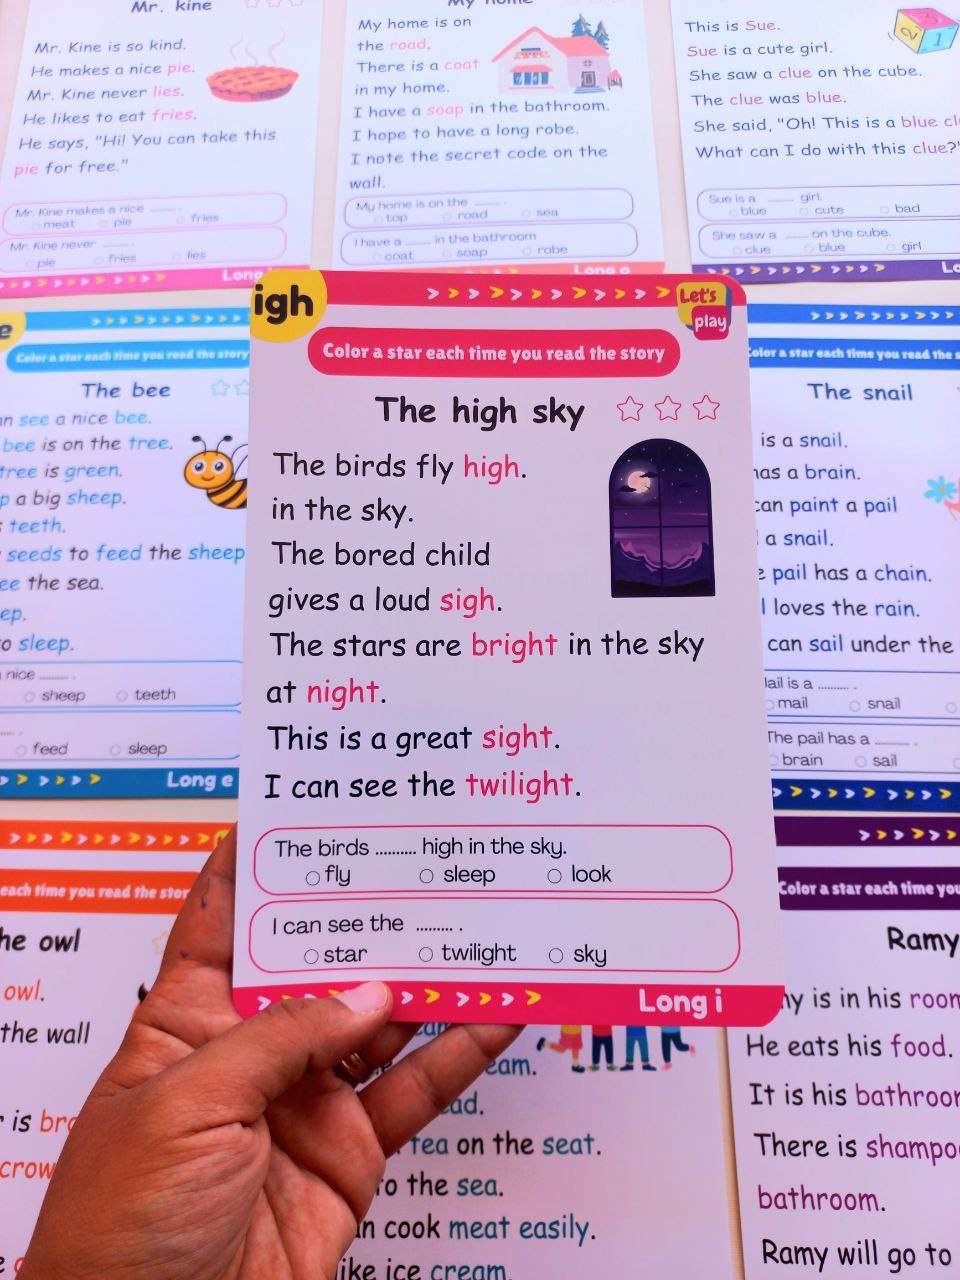 Mr. kine
Mr. Kine is so kind.
He makes a nice pie.
Mr. Kine never lies.
He likes to eat fries.
He says, "Hi! You can take this
pie for free."
Mr. Kine makes a nice ........ .
meat pie fries
Mr. Kine never ........ .
pie fries lies
Long
My home
My home is on
the road.
There is a coat
in my home.
I have a soap in the bathroom.
I hope to have a long robe.
I note the secret code on the
wall.
My home is on the ........ .
top road sea
I have a ........ in the bathroom
coat soap robe
Long o
This is Sue.
Sue is a cute girl.
She saw a clue on the cube.
The clue was blue.
She said, "Oh! This is a blue
What can I do with this clue?"
Sue is a ........ girl.
blue cute bad
She saw a ........ on the cube.
clue blue girl
Color a star each time you read the story
The bee
see a nice bee.
bee is on the tree.
tree is green.
a big sheep.
teeth.
seeds to feed the sheep
the sea.
to sleep.
nice ......... .
sheep teeth
feed sleep
Long e
igh
Let's
play
Color a star each time you read the story
The high sky
The birds fly high.
in the sky.
The bored child
gives a loud sigh.
The stars are bright in the sky
at night.
This is a great sight.
I can see the twilight.
The birds .......... high in the sky.
fly sleep look
I can see the ......... .
star twilight sky
Long i
Color a star each time you read the s
The snail
is a snail.
has a brain.
can paint a pail
a snail.
pail has a chain.
loves the rain.
can sail under the
is a .......... .
mail snail
The pail has a .......... .
brain sail
each time you read the stor
he owl
owl.
the wall
is
crow
ead.
tea on the seat.
to the sea.
cook meat easily.
like ice cream.
Color a star each time you
Ramy
is in his room
He eats his food.
It is his bathroom
There is shampoo
bathroom.
Ramy will go to